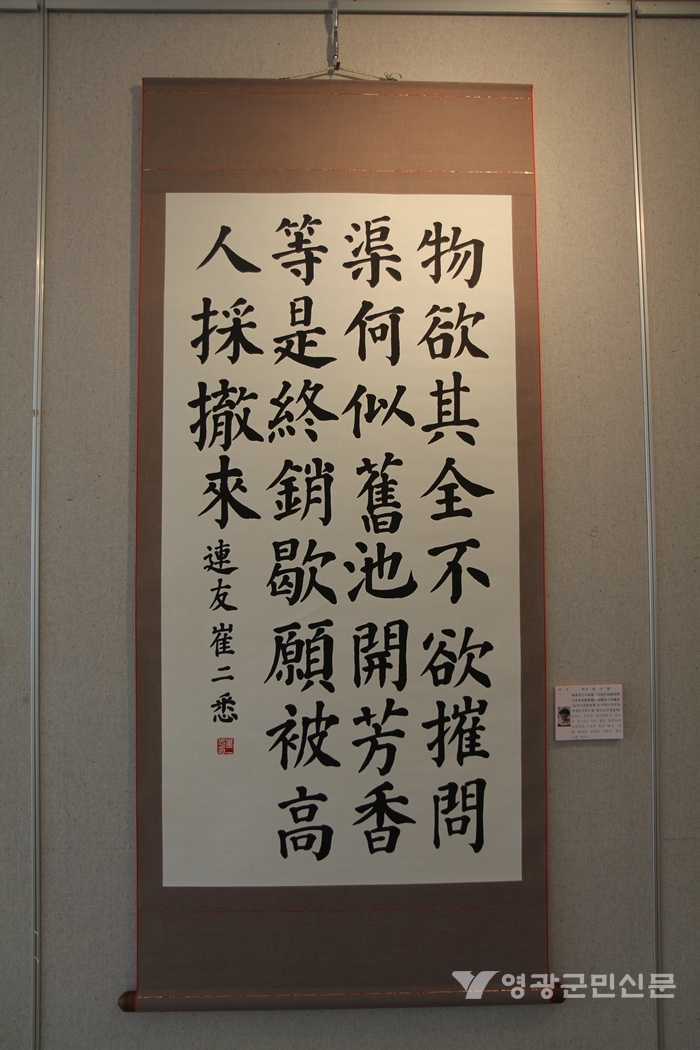 物欲其全不欲摧問
渠何似舊池開芳香
等是終銷歇願被高
人採撤來
連友 崔二悉
영광군민신문